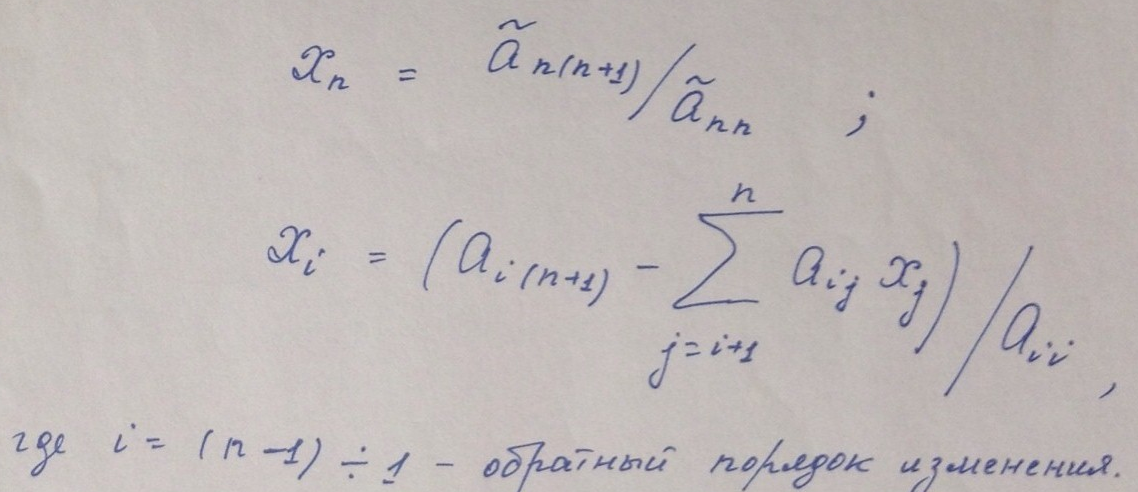 xₙ = ãₙ₍ₙ₊₁₎ / ãₙₙ ;
xᵢ = (aᵢ₍ₙ₊₁₎ − ∑ⁿⱼ₌ᵢ₊₁ aᵢⱼ xⱼ) / aᵢᵢ ,
где i = (n−1) ÷ 1 – обратный порядок изменения.